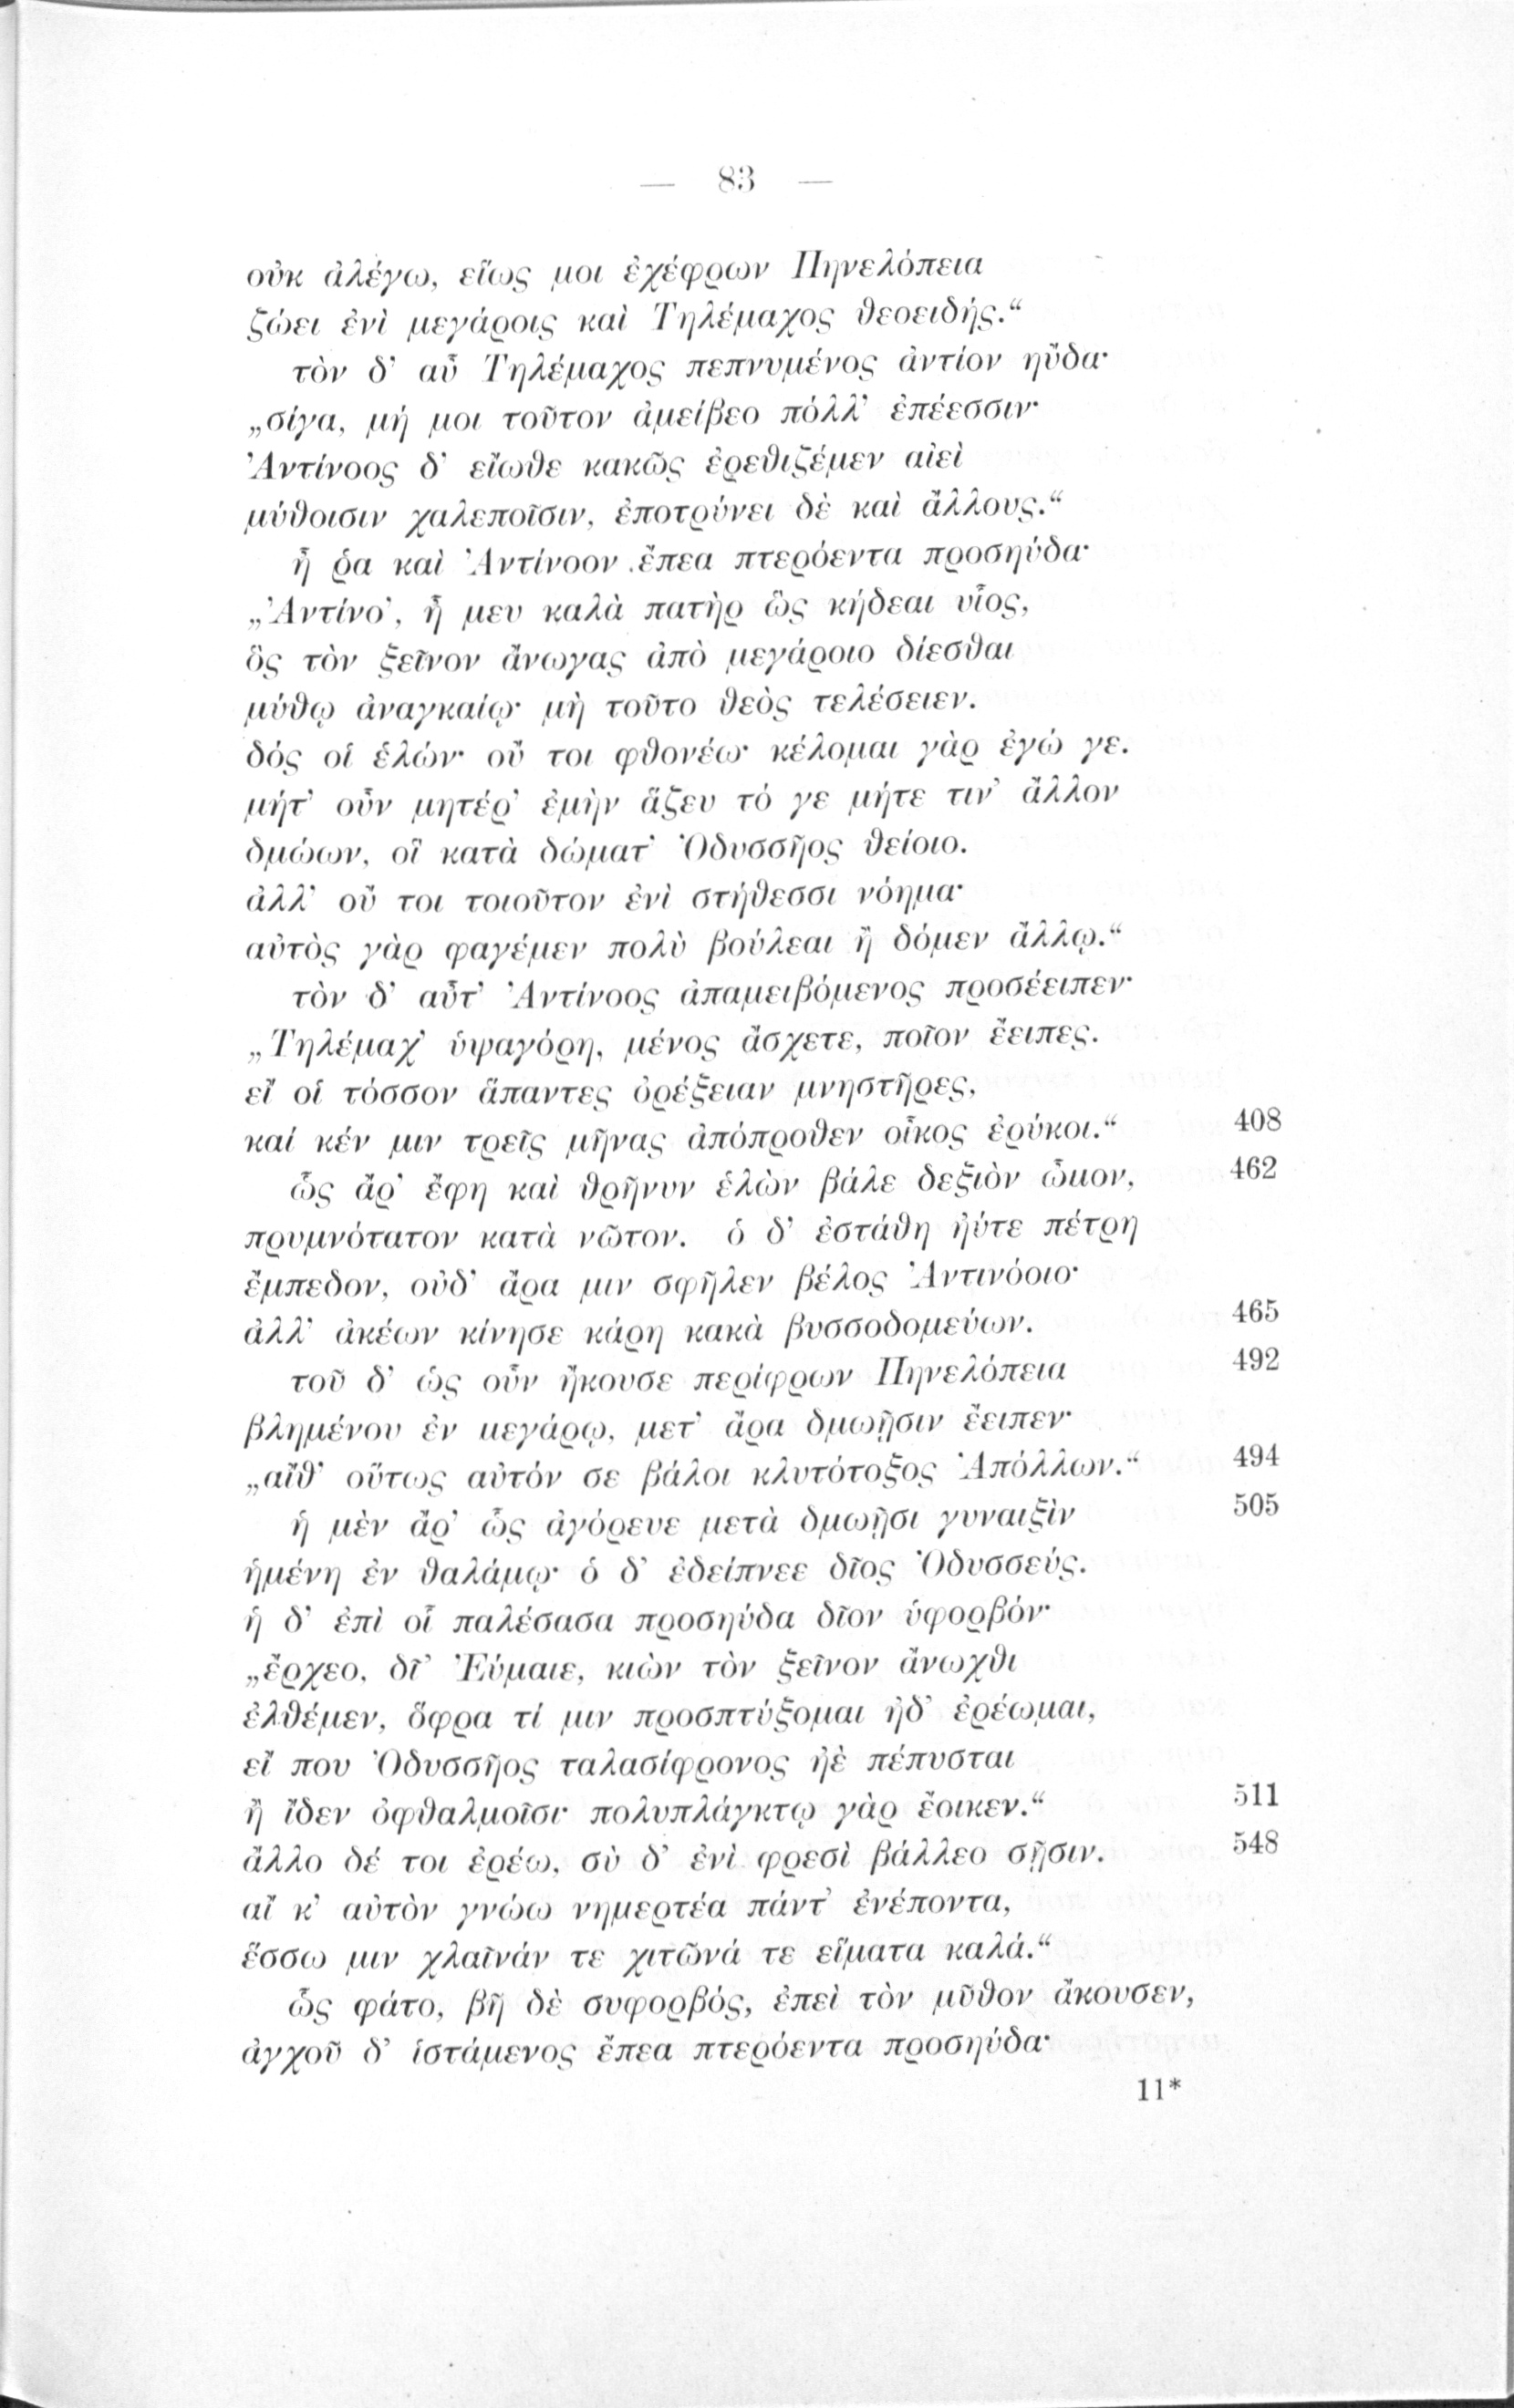 — 83 —
οὐκ ἀλέγω, εἵως μοι ἐχέφρων Πηνελόπεια
ζώει ἐνὶ μεγάροις καὶ Τηλέμαχος θεοειδής.“
τὸν δ᾽ αὖ Τηλέμαχος πεπνυμένος ἀντίον ηὔδα·
„σίγα, μή μοι τοῦτον ἀμείβεο πόλλ᾽ ἐπέεσσιν·
Ἀντίνοος δ᾽ εἴωθε κακῶς ἐρεθιζέμεν αἰεὶ
μύθοισιν χαλεποῖσιν, ἐποτρύνει δὲ καὶ ἄλλους.“
ἦ ῥα καὶ Ἀντίνοον ἔπεα πτερόεντα προσηύδα·
„Ἀντίνο᾽, ἦ μευ καλὰ πατὴρ ὣς κήδεαι υἷος,
ὃς τὸν ξεῖνον ἄνωγας ἀπὸ μεγάροιο δίεσθαι
μύθῳ ἀναγκαίῳ· μὴ τοῦτο θεὸς τελέσειεν.
δός οἱ ἑλών· οὔ τοι φθονέω· κέλομαι γὰρ ἐγώ γε.
μήτ᾽ οὖν μητέρ᾽ ἐμὴν ἅζευ τό γε μήτε τιν᾽ ἄλλον
δμώων, οἳ κατὰ δώματ᾽ Ὀδυσσῆος θείοιο.
ἀλλ᾽ οὔ τοι τοιοῦτον ἐνὶ στήθεσσι νόημα·
αὐτὸς γὰρ φαγέμεν πολὺ βούλεαι ἢ δόμεν ἄλλῳ.“
τὸν δ᾽ αὖτ᾽ Ἀντίνοος ἀπαμειβόμενος προσέειπεν·
„Τηλέμαχ᾽ ὑψαγόρη, μένος ἄσχετε, ποῖον ἔειπες.
εἴ οἱ τόσσον ἅπαντες ὀρέξειαν μνηστῆρες,
καί κέν μιν τρεῖς μῆνας ἀπόπροθεν οἶκος ἐρύκοι.“ 408
ὣς ἄρ᾽ ἔφη καὶ θρῆνυν ἑλὼν βάλε δεξιὸν ὦμον, 462
πρυμνότατον κατὰ νῶτον. ὁ δ᾽ ἐστάθη ἠύτε πέτρη
ἔμπεδον, οὐδ᾽ ἄρα μιν σφῆλεν βέλος Ἀντινόοιο·
ἀλλ᾽ ἀκέων κίνησε κάρη κακὰ βυσσοδομεύων. 465
τοῦ δ᾽ ὡς οὖν ἤκουσε περίφρων Πηνελόπεια 492
βλημένου ἐν μεγάρῳ, μετ᾽ ἄρα δμωῇσιν ἔειπεν·
„αἴθ᾽ οὕτως αὐτόν σε βάλοι κλυτότοξος Ἀπόλλων.“ 494
ἡ μὲν ἄρ᾽ ὣς ἀγόρευε μετὰ δμωῇσι γυναιξὶν 505
ἡμένη ἐν θαλάμῳ· ὁ δ᾽ ἐδείπνεε δῖος Ὀδυσσεύς.
ἡ δ᾽ ἐπὶ οἷ παλέσασα προσηύδα δῖον ὑφορβόν·
„ἔρχεο, δῖ᾽ Εὔμαιε, κιὼν τὸν ξεῖνον ἄνωχθι
ἐλθέμεν, ὄφρα τί μιν προσπτύξομαι ἠδ᾽ ἐρέωμαι,
εἴ που Ὀδυσσῆος ταλασίφρονος ἠὲ πέπυσται
ἢ ἴδεν ὀφθαλμοῖσι· πολυπλάγκτῳ γὰρ ἔοικεν.“ 511
ἄλλο δέ τοι ἐρέω, σὺ δ᾽ ἐνὶ φρεσὶ βάλλεο σῇσιν. 548
αἴ κ᾽ αὐτὸν γνώω νημερτέα πάντ᾽ ἐνέποντα,
ἕσσω μιν χλαῖνάν τε χιτῶνά τε εἵματα καλά.“
ὣς φάτο, βῆ δὲ συφορβός, ἐπεὶ τὸν μῦθον ἄκουσεν,
ἀγχοῦ δ᾽ ἱστάμενος ἔπεα πτερόεντα προσηύδα·
11*